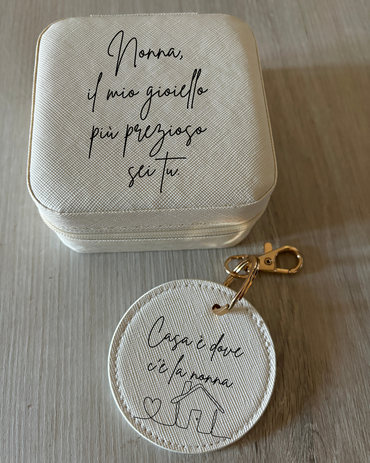 Nonna,
il mio gioiello
più prezioso
sei tu.
Casa è dove
c'è la nonna